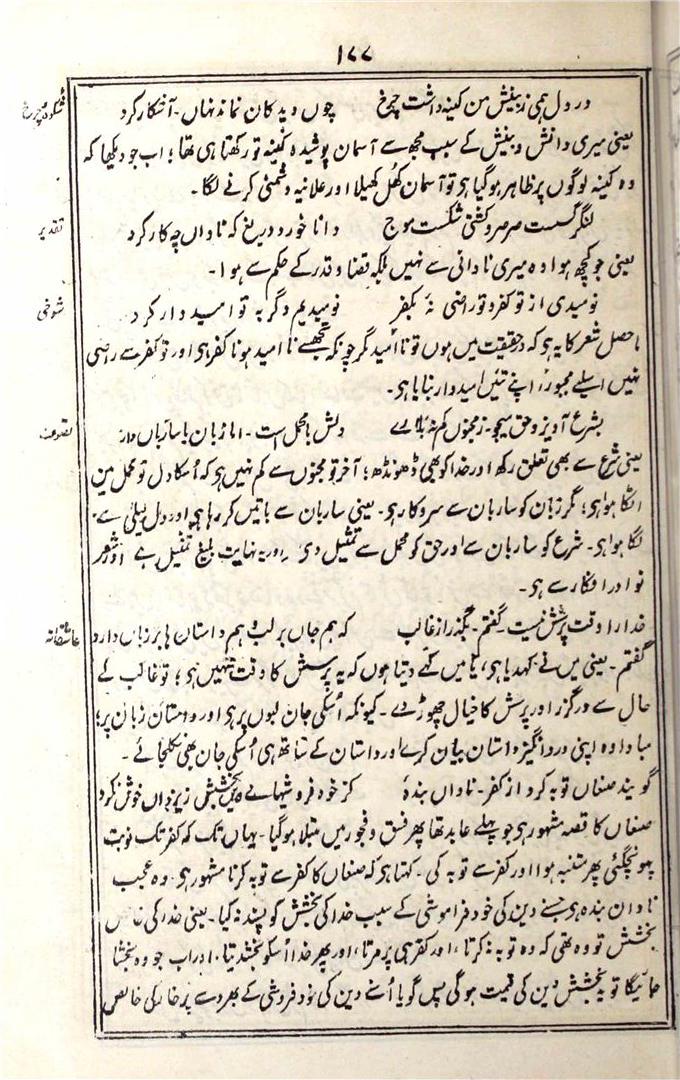 ۱۷۷
در دل ہمی ز بینش من کینہ داشت چرخ    چوں دید کان نماند نہاں۔ آشکار کرد
شکوہ چرخ
یعنی میری دانش و بینش کے سبب مجھ سے آسمان پوشیدہ کینہ تو رکھتا ہی تھا؛ اب جو دیکھا کہ
وہ کینہ لوگوں پر ظاہر ہو گیا ہی تو آسمان کھُل کھیلا اور علانیہ دشمنی کرنے لگا۔
لنگر گسست صرصر و کشتی شکست موج    دانا خورد دریغ کہ ناداں چہ کار کرد
تقدیر
یعنی جو کچھ ہوا وہ میری نادانی سے نہیں بلکہ قضا و قدر کے حکم سے ہوا۔
نومیدی از تو کفر و تو راضی نۂ بکفر    نومیدیم دگر بہ تو امیدوار کرد
شوخی
ماحصل شعر کا یہ ہی کہ درحقیقت میں ہوں تو ناامید مگر چونکہ تجھسے ناامید ہونا کفر ہی اور تو کفر سے راضی
نہیں اسلیے مجبوراً اپنے تئیں امیدوار بنایا ہی۔
بشرع آویز و حق میجو۔ ز مجنوں کم نۂ بارے    دلش با محمل ست۔ اما زباں با سارباں دارد
تصوف
یعنی شرع سے بھی تعلق رکھ اور خدا کو بھی ڈھونڈھ؛ آخر تو مجنوں سے کم نہیں ہی کہ اُسکا دل تو محمل میں
اٹکا ہوا ہی؛ مگر زبان کو ساربان سے سروکار ہی۔ یعنی ساربان سے باتیں کر رہا ہی اور دل لیلیٰ سے
لگا ہوا ہی۔ شرع کو ساربان سے اور حق کو محمل سے تمثیل دی اور یہ نہایت بلیغ تمثیل ہے اور شعر
نوادر افکار سے ہی۔
خدا را وقت پرسش نیست۔ گفتم۔ بگذر از غالب    کہ ہم جاں بر لب و ہم داستاں ہا بر زباں دارد
عاشقانہ
گفتم۔ یعنی میں نے کہدیا ہی، یا میں کہے دیتا ہوں کہ یہ پرسش کا وقت نہیں ہی؛ تو غالب کے
حال سے درگزر اور پرسش کا خیال چھوڑ دے۔ کیونکہ اُسکی جان لبوں پر ہی اور داستان زبان پر؛
مبادا وہ اپنی درد انگیز داستان بیان کرے اور داستان کے ساتھ ہی اُسکی جان بھی نکلجائے۔
گویند صنعاں توبہ کرد از کفر۔ ناداں بندۂ    کز خود فروشیہاے دیں بخشش ز یزداں خوش نکرد
صنعاں کا قصہ مشہور ہی جو پہلے عابد تھا پھر فسق و فجور میں مبتلا ہو گیا۔ یہاں تک کہ کفر تک نوبت
پہونچگئی پھر متنبہ ہوا اور کفر سے توبہ کی۔ کہتا ہی کہ صنعاں کا کفر سے توبہ کرنا مشہور ہی۔ وہ عجیب
نادان بندہ ہی جسنے دین کی خود فراموشی کے سبب خدا کی بخشش کو پسند نہ کیا۔ یعنی خدا کی خالص
بخشش تو وہ تھی کہ وہ توبہ نہ کرتا، اور کفر ہی پر مرتا، اور پھر خدا اُسکو بخشدیتا۔ اور اب جو وہ بخشا
جائیگا تو یہ بخشش دین کی قیمت ہوگی پس گویا اُسنے دین کی خود فروشی کے بھروسے پر خدا کی خالص